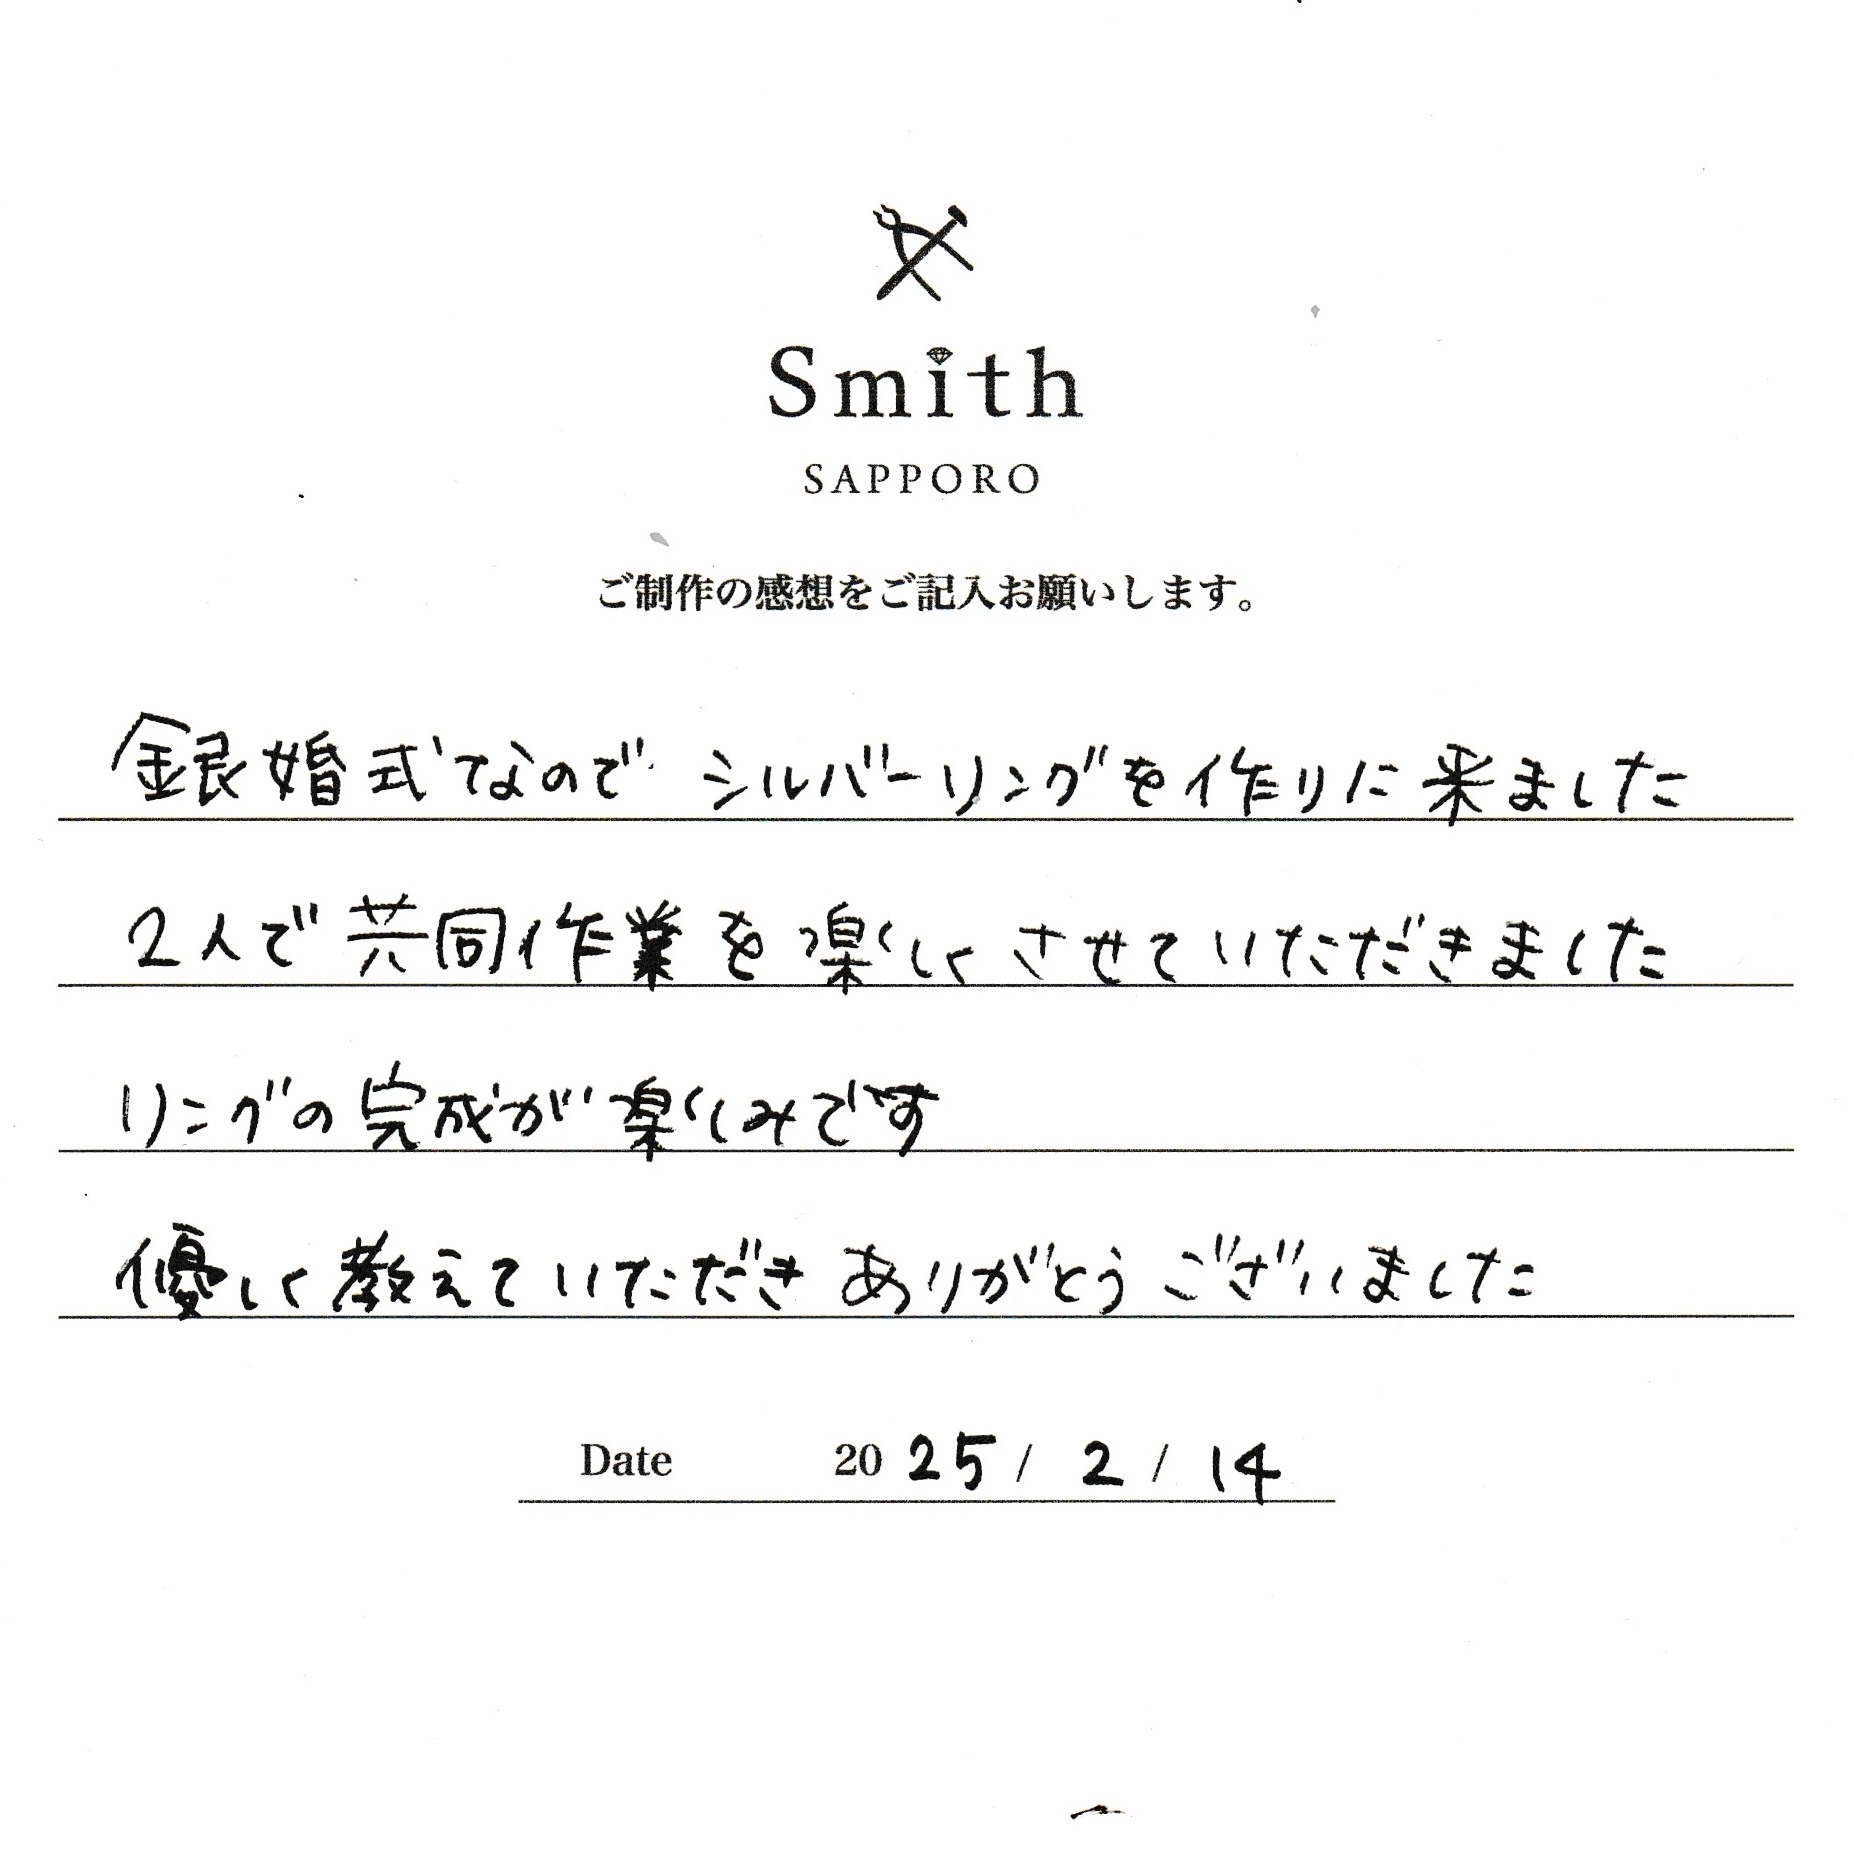 Smith
SAPPORO
ご制作の感想をご記入お願いします。
銀婚式なので シルバーリングを作りに来ました
2人で共同作業を楽しくさせていただきました
リングの完成が楽しみです
優しく教えていただきありがとうございました
Date 2025 / 2 / 14